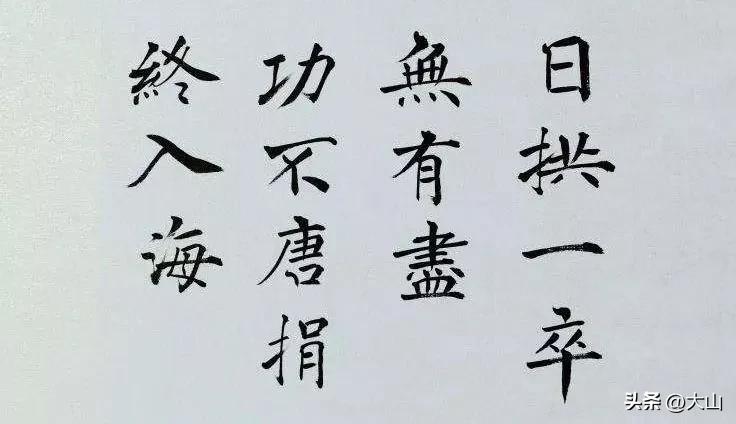 日拱一卒
無有盡
功不唐捐
終入海
头条 @大山